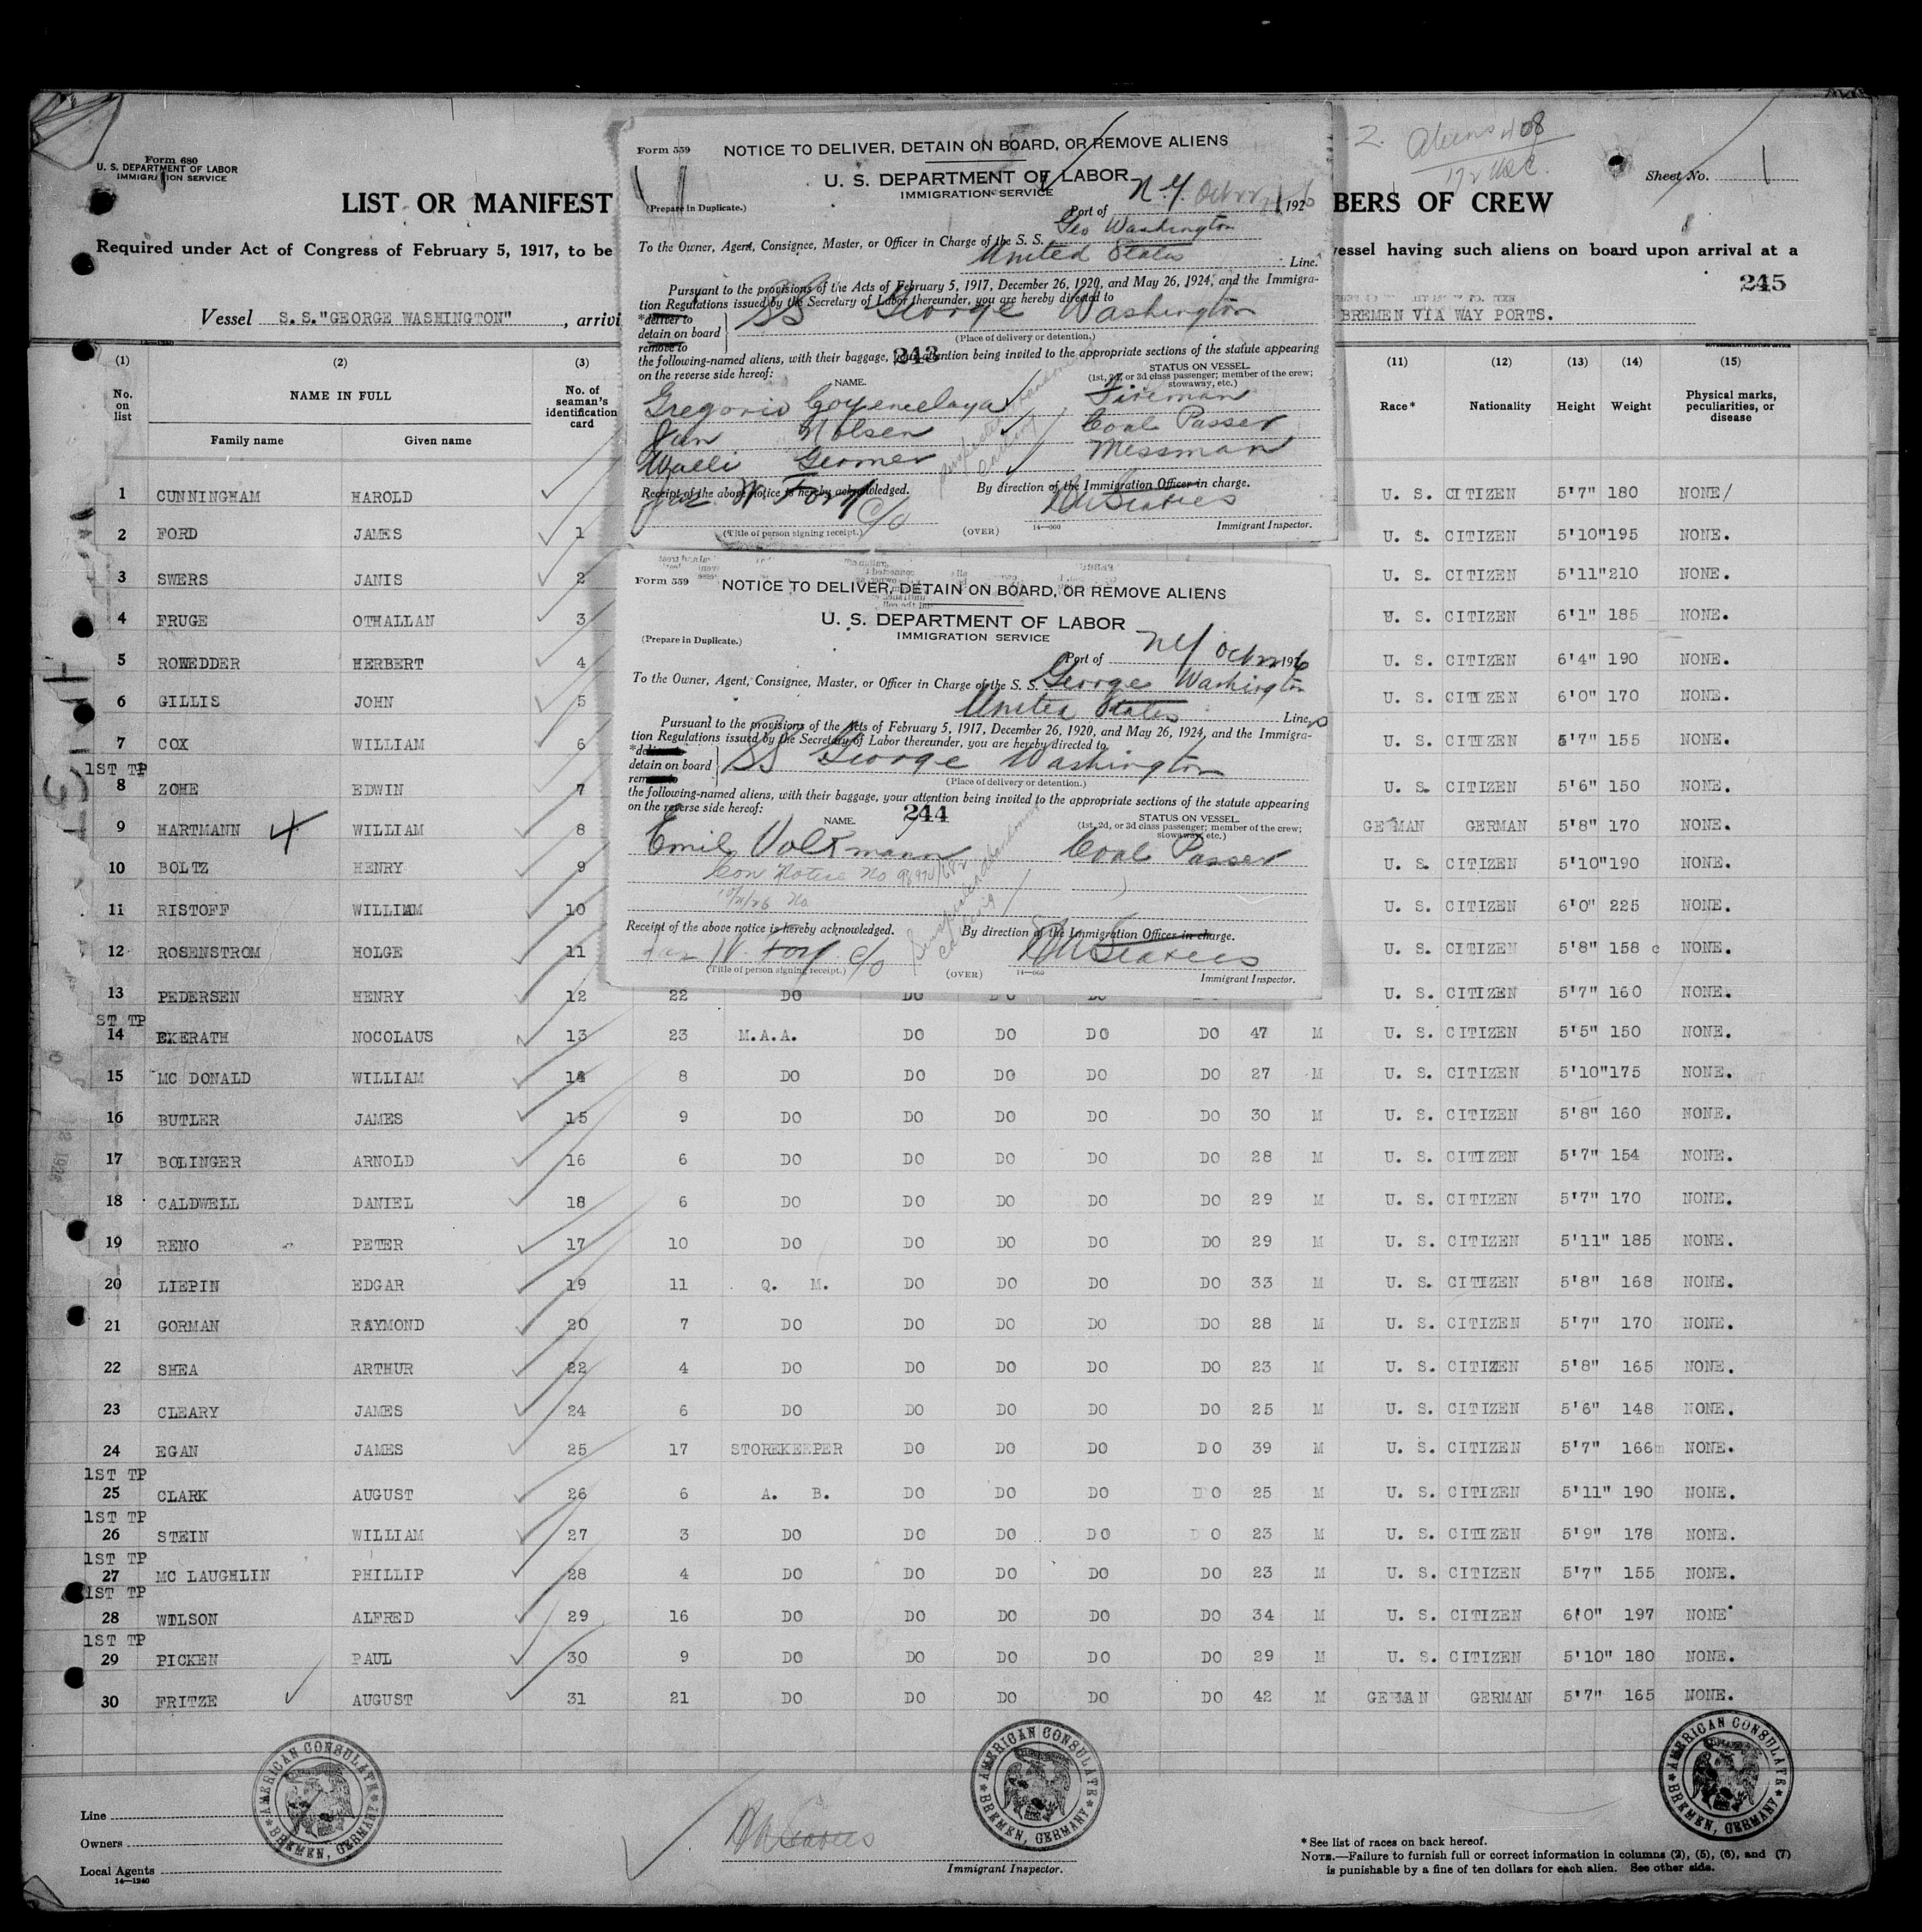 Form 680
U. S. DEPARTMENT OF LABOR
IMMIGRATION SERVICE
LIST OR MANIFEST
BERS OF CREW
Aliens 408
Sheet No. 1
Required under Act of Congress of February 5, 1917, to be
vessel having such aliens on board upon arrival at a
245
Vessel S.S."GEORGE WASHINGTON" , arrivi
BREMEN VIA WAY PORTS.
Form 559
NOTICE TO DELIVER, DETAIN ON BOARD, OR REMOVE ALIENS
U. S. DEPARTMENT OF LABOR
IMMIGRATION SERVICE
(Prepare in Duplicate.)
Port of N.Y. Oct 1926
To the Owner, Agent, Consignee, Master, or Officer in Charge of the S. S. Geo Washington
United States Line.
Pursuant to the provisions of the Acts of February 5, 1917, December 26, 1920, and May 26, 1924, and the Immigra-
tion Regulations issued by the Secretary of Labor thereunder, you are hereby directed to
*deliver to
detain on board
remove to
SS George Washington
(Place of delivery or detention.)
243
the following-named aliens, with their baggage, your attention being invited to the appropriate sections of the statute appearing
on the reverse side hereof:
NAME.
STATUS ON VESSEL.
(1st, 2d, or 3d class passenger; member of the crew; stowaway, etc.)
Gregorio Goyencelaya Fireman
Jan Nolsen Coal Passer
Walli Germer Messman
Receipt of the above notice is hereby acknowledged.
By direction of the Immigration Officer in charge.
Jas. W. Ford C/O
(Title of person signing receipt.)
(OVER)
14—660
Immigrant Inspector.
Form 559
NOTICE TO DELIVER, DETAIN ON BOARD, OR REMOVE ALIENS
U. S. DEPARTMENT OF LABOR
IMMIGRATION SERVICE
(Prepare in Duplicate.)
Port of NY Oct 22 1926
To the Owner, Agent, Consignee, Master, or Officer in Charge of the S. S. George Washington
United States Line,
Pursuant to the provisions of the Acts of February 5, 1917, December 26, 1920, and May 26, 1924, and the Immigra-
tion Regulations issued by the Secretary of Labor thereunder, you are hereby directed to
detain on board
SS George Washington
(Place of delivery or detention.)
the following-named aliens, with their baggage, your attention being invited to the appropriate sections of the statute appearing
on the reverse side hereof:
244
NAME.
STATUS ON VESSEL.
(1st, 2d, or 3d class passenger; member of the crew; stowaway, etc.)
Emil Volkmann Coal Passer
Receipt of the above notice is hereby acknowledged.
By direction of the Immigration Officer in charge.
Jas W. Ford C/O
(Title of person signing receipt.)
(OVER)
14—660
Immigrant Inspector.
(1) (2) (3) (11) (12) (13) (14) (15)
No. on list
NAME IN FULL
Family name Given name
No. of seaman's identification card
Race* Nationality Height Weight Physical marks, peculiarities, or disease
1 CUNNINGHAM HAROLD U. S. CITIZEN 5'7" 180 NONE/
2 FORD JAMES 1 U. S. CITIZEN 5'10" 195 NONE.
3 SWERS JANIS 2 U. S. CITIZEN 5'11" 210 NONE.
4 FRUGE OTHALLAN 3 U. S. CITIZEN 6'1" 185 NONE.
5 ROWEDDER HERBERT 4 U. S. CITIZEN 6'4" 190 NONE.
6 GILLIS JOHN 5 U. S. CITIZEN 6'0" 170 NONE.
7 COX WILLIAM 6 U. S. CITIZEN 5'7" 155 NONE.
1ST TP
8 ZOHE EDWIN 7 U. S. CITIZEN 5'6" 150 NONE.
9 HARTMANN WILLIAM 8 GERMAN GERMAN 5'8" 170 NONE.
10 BOLTZ HENRY 9 U. S. CITIZEN 5'10" 190 NONE.
11 RISTOFF WILLIAM 10 U. S. CITIZEN 6'0" 225 NONE.
12 ROSENSTROM HOLGE 11 U. S. CITIZEN 5'8" 158 c NONE.
13 PEDERSEN HENRY 12 22 DO DO DO DO U. S. CITIZEN 5'7" 160 NONE.
ST TP
14 EKERATH NOCOLAUS 13 23 M.A.A. DO DO DO DO 47 M U. S. CITIZEN 5'5" 150 NONE.
15 MC DONALD WILLIAM 14 8 DO DO DO DO DO 27 M U. S. CITIZEN 5'10" 175 NONE.
16 BUTLER JAMES 15 9 DO DO DO DO DO 30 M U. S. CITIZEN 5'8" 160 NONE.
17 BOLINGER ARNOLD 16 6 DO DO DO DO DO 28 M U. S. CITIZEN 5'7" 154 NONE.
18 CALDWELL DANIEL 18 6 DO DO DO DO DO 29 M U. S. CITIZEN 5'7" 170 NONE.
19 RENO PETER 17 10 DO DO DO DO DO 29 M U. S. CITIZEN 5'11" 185 NONE.
20 LIEPIN EDGAR 19 11 Q. M. DO DO DO DO 33 M U. S. CITIZEN 5'8" 168 NONE.
21 GORMAN RAYMOND 20 7 DO DO DO DO DO 28 M U. S. CITIZEN 5'7" 170 NONE.
22 SHEA ARTHUR 22 4 DO DO DO DO DO 23 M U. S. CITIZEN 5'8" 165 NONE.
23 CLEARY JAMES 24 6 DO DO DO DO DO 25 M U. S. CITIZEN 5'6" 148 NONE.
24 EGAN JAMES 25 17 STOREKEEPER DO DO DO DO 39 M U. S. CITIZEN 5'7" 166 NONE.
1ST TP
25 CLARK AUGUST 26 6 A. B. DO DO DO DO 25 M U. S. CITIZEN 5'11" 190 NONE.
1ST TP
26 STEIN WILLIAM 27 3 DO DO DO DO DO 23 M U. S. CITIZEN 5'9" 178 NONE.
1ST TP
27 MC LAUGHLIN PHILLIP 28 4 DO DO DO DO DO 23 M U. S. CITIZEN 5'7" 155 NONE.
1ST TP
28 WILSON ALFRED 29 16 DO DO DO DO DO 34 M U. S. CITIZEN 6'0" 197 NONE
1ST TP
29 PICKEN PAUL 30 9 DO DO DO DO DO 29 M U. S. CITIZEN 5'10" 180 NONE.
30 FRITZE AUGUST 31 21 DO DO DO DO DO 42 M GERMAN GERMAN 5'7" 165 NONE.
AMERICAN CONSULATE BREMEN, GERMANY
AMERICAN CONSULATE BREMEN, GERMANY
AMERICAN CONSULATE BREMEN, GERMANY
Line
Owners
Local Agents
14—1240
Immigrant Inspector.
* See list of races on back hereof.
NOTE.—Failure to furnish full or correct information in columns (2), (5), (6), and (7)
is punishable by a fine of ten dollars for each alien. See other side.